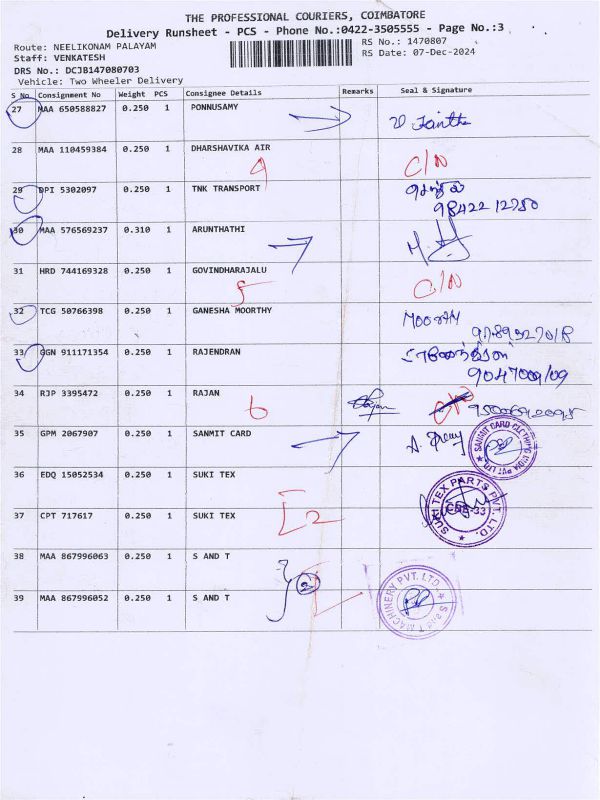 THE PROFESSIONAL COURIERS, COIMBATORE
Delivery Runsheet - PCS - Phone No.:0422-3505555 - Page No.:3
Route: NEELIKONAM PALAYAM RS No.: 1470807
Staff: VENKATESH RS Date: 07-Dec-2024
DRS No.: DCJB147080703
Vehicle: Two Wheeler Delivery
S No Consignment No Weight PCS Consignee Details Remarks Seal & Signature
27 MAA 650588827 0.250 1 PONNUSAMY
28 MAA 110459384 0.250 1 DHARSHAVIKA AIR C/N
29 DPI 5302097 0.250 1 TNK TRANSPORT
98422 12780
30 MAA 576569237 0.310 1 ARUNTHATHI
31 HRD 744169328 0.250 1 GOVINDHARAJALU C/N
5
32 TCG 50766398 0.250 1 GANESHA MOORTHY
33 GGN 911171354 0.250 1 RAJENDRAN
34 RJP 3395472 0.250 1 RAJAN
6
35 GPM 2067907 0.250 1 SANMIT CARD
SANMIT CARD CLOTHING INDIA PVT. LTD.
36 EDQ 15052534 0.250 1 SUKI TEX
37 CPT 717617 0.250 1 SUKI TEX
2
SUKI TEX PARTS PVT. LTD.
CBE-33
38 MAA 867996063 0.250 1 S AND T
39 MAA 867996052 0.250 1 S AND T
S and T MACHINERY PVT. LTD.